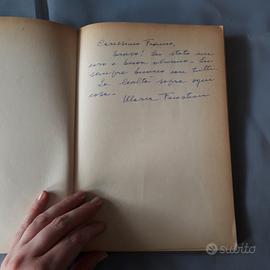 Carissimo Franco,
bravo! Sei stato un
vero e buon alunno. Sii
sempre buono con tutti.
La lealtà sopra ogni
cosa.
Maria
subito